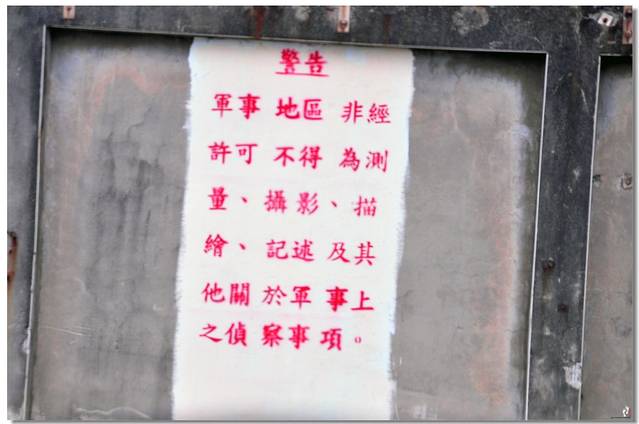 警告
軍事地區非經
許可不得為測
量、攝影、描
繪、記述及其
他關於軍事上
之偵察事項。